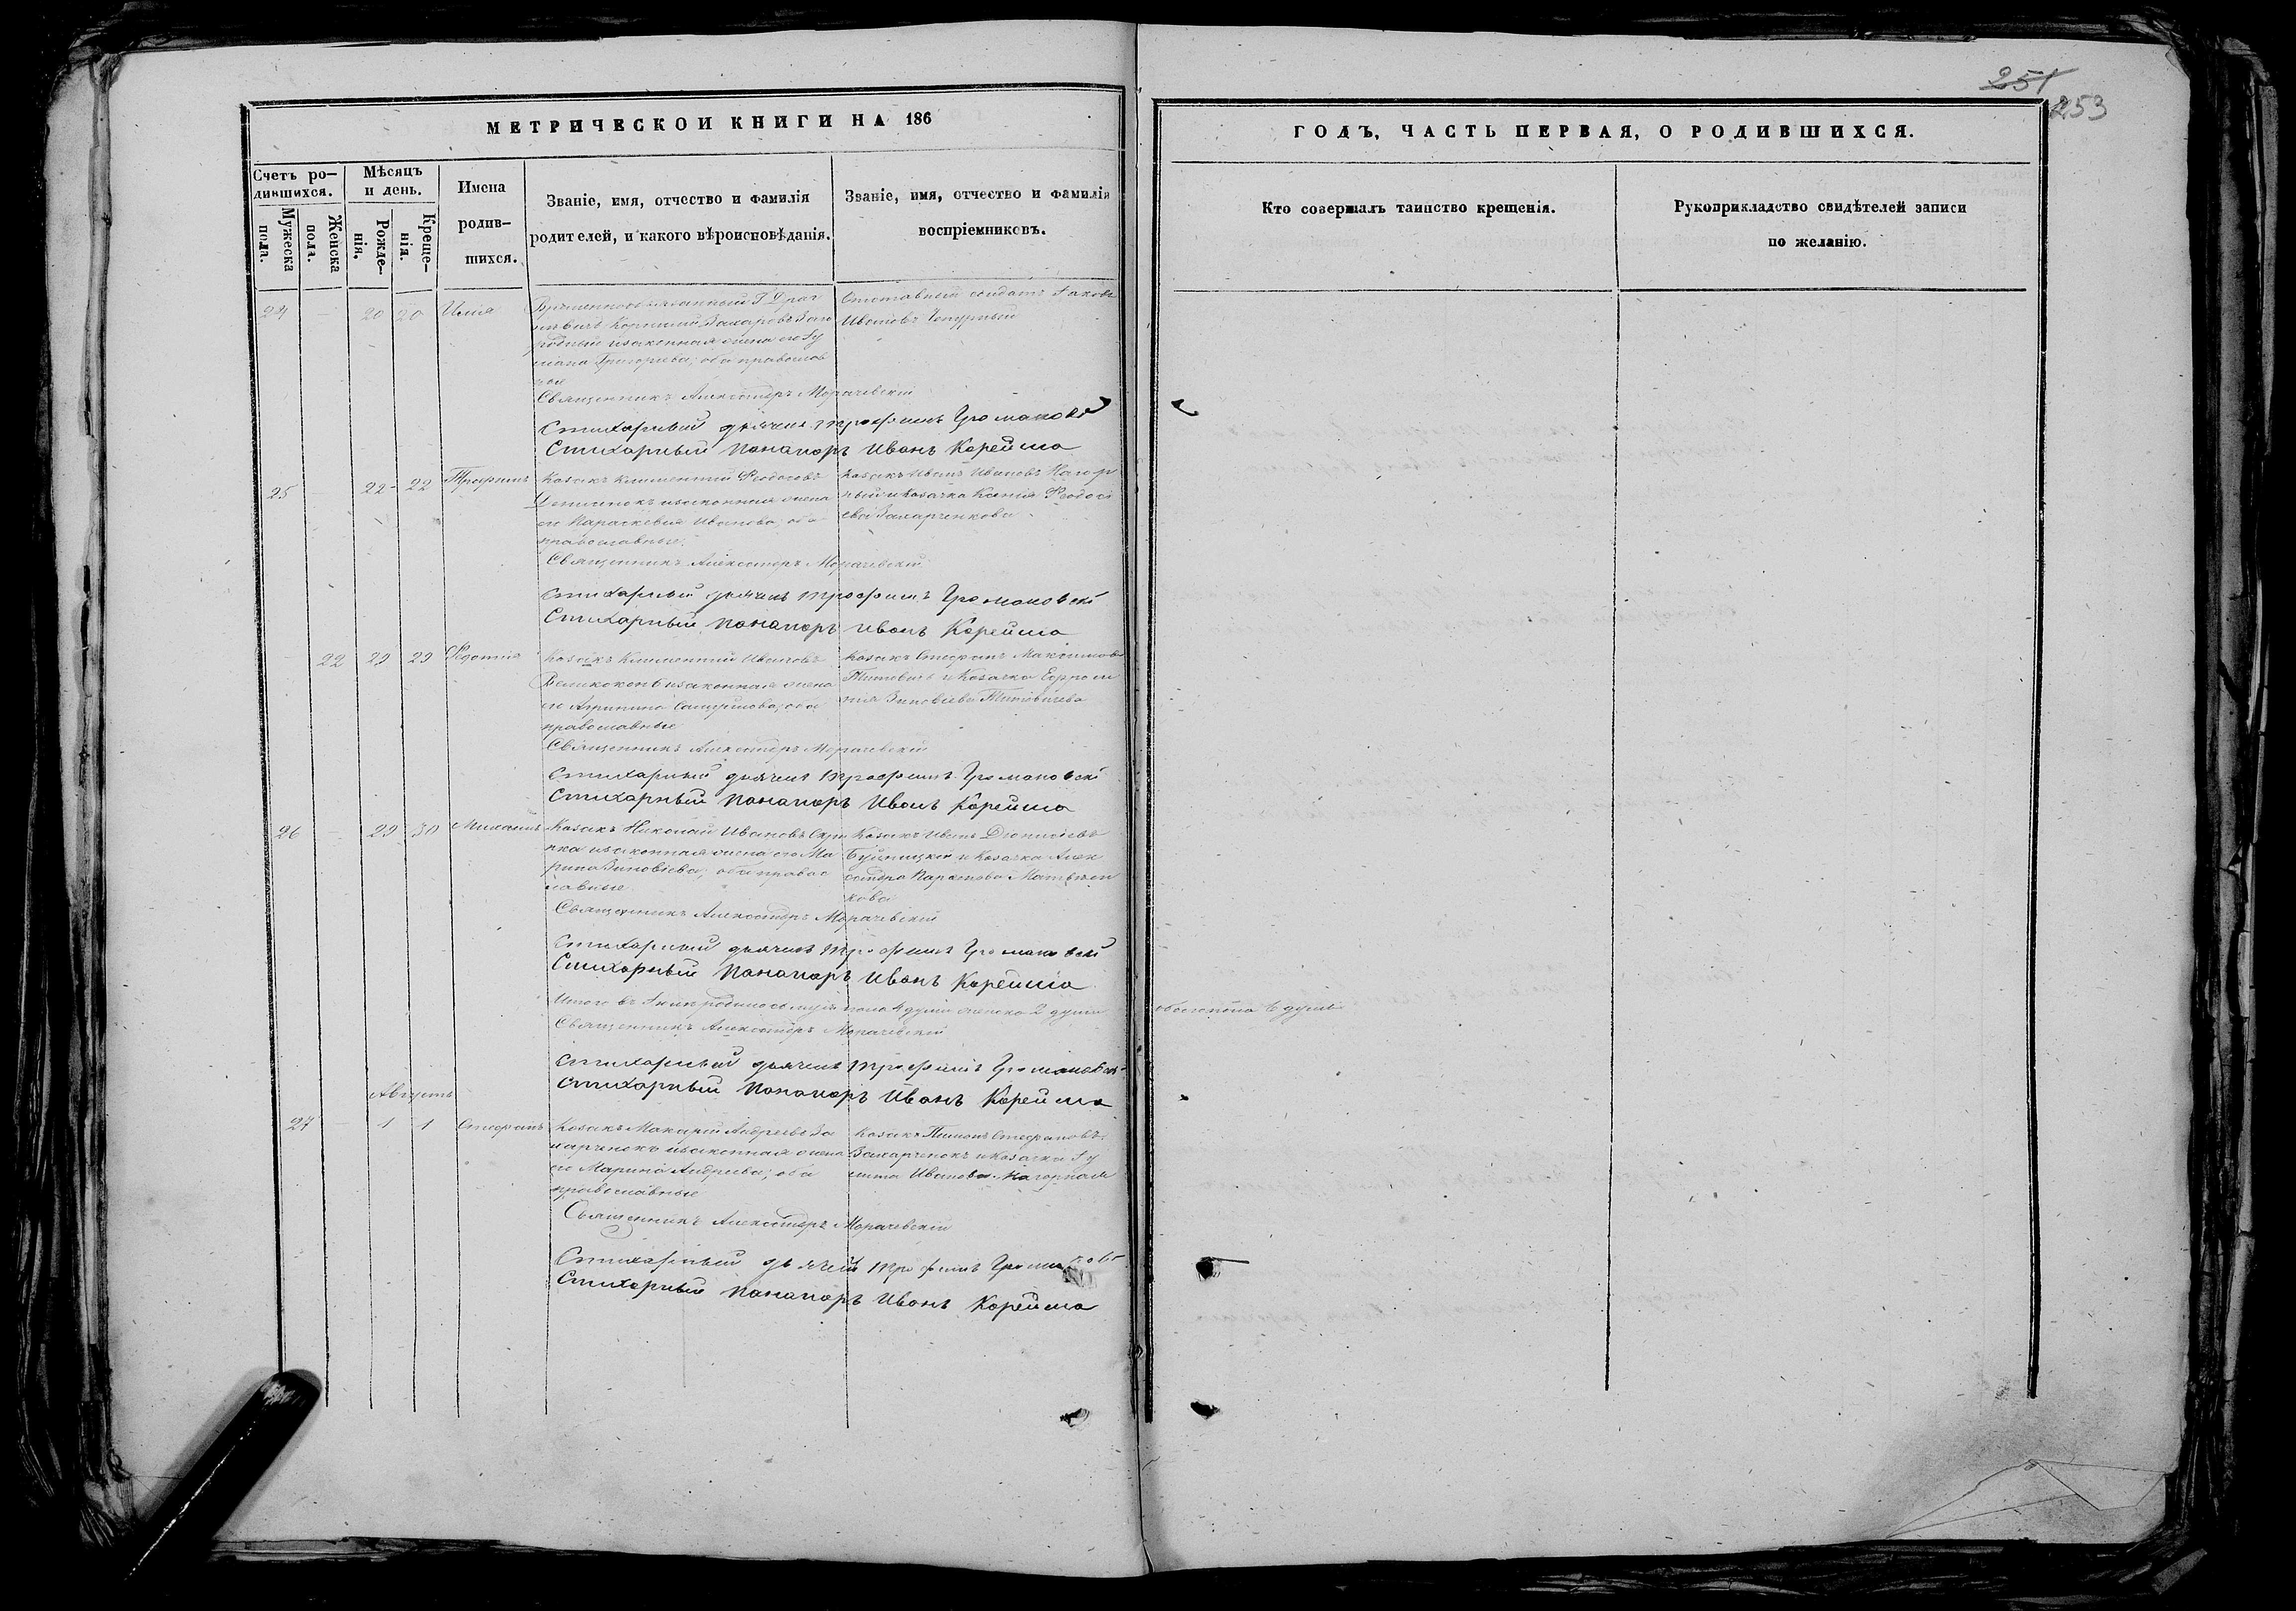 251
253
МЕТРИЧЕСКОЙ КНИГИ НА 186
ГОДЪ, ЧАСТЬ ПЕРВАЯ, О РОДИВШИХСЯ.
Счетъ ро-
дившихся.
Мужеска
пола.
Женска
пола.
Мѣсяцъ
и день.
Рожде-
нія.
Креще-
нія.
Имена
родив-
шихся.
Званіе, имя, отчество и фамилія
родителей, и какого вѣроисповѣданія.
Званіе, имя, отчество и фамилія
воспріемниковъ.
Кто совершалъ таинство крещенія.
Рукоприкладство свидѣтелей записи
по желанію.
24 – 20 20 Илія
Временнообязанный Г.
Корнилій Захаровъ
и законная жена его Іу
Григорьева, оба православ
ные
Отставный солдатъ Іаковъ
Ивановъ Чепурный
Священникъ Александръ Морачевскій
Стихарный дьячекъ Трофимъ Громаковскій
Стихарный понамарь Иванъ Корейша
25 – 22 22 Трофимъ
Козакъ Климентій Феодосовъ
и законная жена
его Параскевія Иванова, оба
православные.
Козакъ Иванъ Ивановъ Нагор
ный и Козачка Ксенія Феодосі
ева Захарченкова.
Священникъ Александръ Морачевскій
Стихарный дьячекъ Трофимъ Громаковскій
Стихарный понамарь Иванъ Корейша
– 22 29 29 Федотія
Козакъ Климентій Ивановъ
и законная жена
его Агрипина Самуилова, оба
православные
Козакъ Стефанъ Максимовъ
Титовичъ и Козачка Евфроси
нія Зиновіева Титовичева
Священникъ Александръ Морачевскій
Стихарный дьячекъ Трофимъ Громаковскій
Стихарный понамарь Иванъ Корейша
26 – 29 30 Михаилъ
Козакъ Николай Ивановъ Скри
пка и законная жена его Ма
рина Зиновіева, оба правос
лавные.
Козакъ Иванъ Діонисіевъ
Буйницкій и Козачка Алек
сандра Матвѣен
кова
Священникъ Александръ Морачевскій
Стихарный дьячекъ Трофимъ Громаковскій
Стихарный понамарь Иванъ Корейша
Итого въ Іюлѣ родилось муж. пола 4 души женска 2 души
обоего пола 6 душъ
Священникъ Александръ Морачевскій
Стихарный дьячекъ Трофимъ Громаковскій
Стихарный понамарь Иванъ Корейша
Августъ
27 – 1 1 Стефанъ
Козакъ Макарій Андреевъ За
харченокъ и законная жена
его Марина Андреева, оба
православные
Козакъ Тимонъ Стефановъ
Захарченокъ и Козачка Іу
лита Иванова Нагорная
Священникъ Александръ Морачевскій
Стихарный дьячекъ Трофимъ
Стихарный понамарь Иванъ Корейша